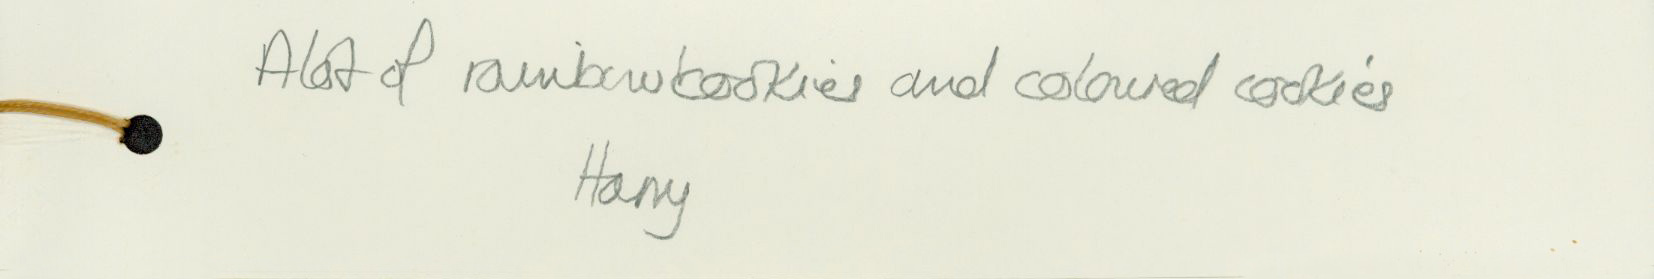 A lot of rainbow cookies and coloured cookies
Harry